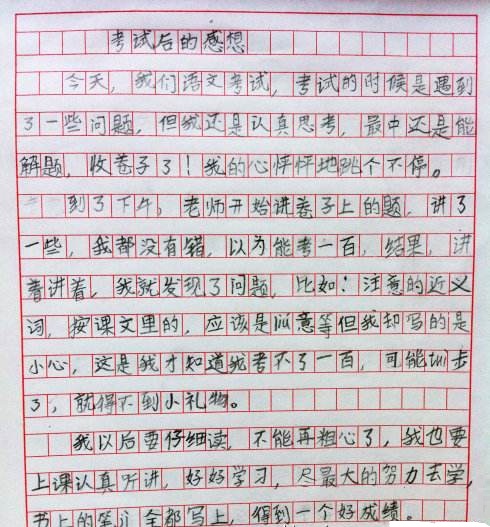 考试后的感想
今天，我们语文考试，考试的时候是遇到
了一些问题，但我还是认真思考，最中还是能
解题，收卷子了！我的心怦怦地跳个不停。
到了下午，老师开始讲卷子上的题，讲了
一些，我都没有错，以为能考一百，结果，讲
着讲着，我就发现了问题，比如：注意的近义
词，按课文里的，应该是 意等但我却写的是
小心，这是我才知道我考不了一百，可能 步
了，就得不到小礼物。
我以后要仔细读，不能再粗心了，我也要
上课认真听讲，好好学习，尽最大的努力去学，
书上的笔 全都写上，得到一个好成绩。